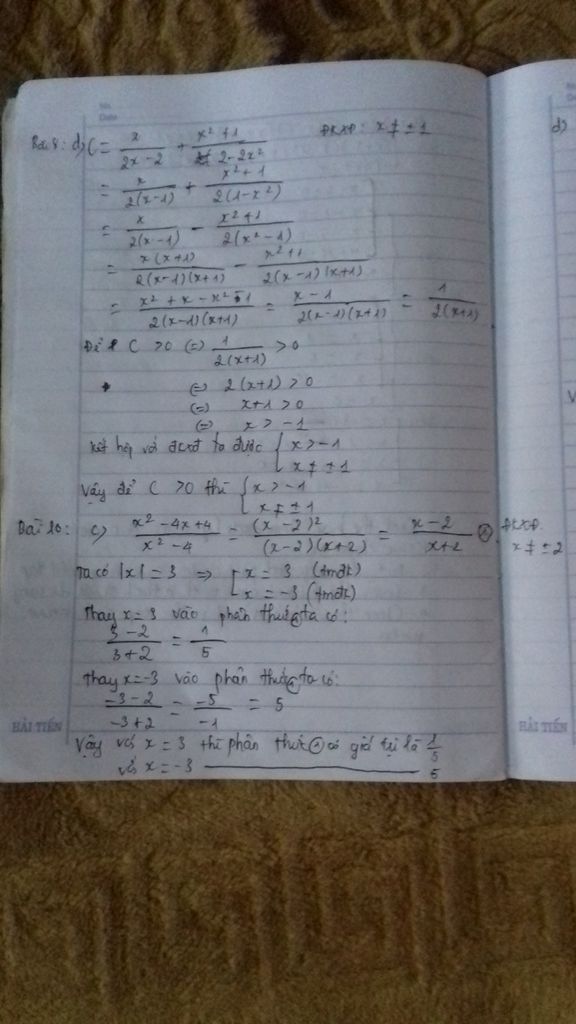 No.
Date
Bài 8: d) C = x/(2x-2) + (x² + 1)/(2-2x²) ĐKXĐ: x ≠ ± 1
= x/(2(x-1)) + (x² + 1)/(2(1-x²))
= x/(2(x-1)) - (x² + 1)/(2(x²-1))
= x(x+1)/(2(x-1)(x+1)) - (x² + 1)/(2(x-1)(x+1))
= (x² + x - x² - 1)/(2(x-1)(x+1)) = (x - 1)/(2(x-1)(x+1)) = 1/(2(x+1))
Để C > 0 (=) 1/(2(x+1)) > 0
(=) 2(x+1) > 0
(=) x+1 > 0
(=) x > -1
Kết hợp với đkxđ ta được { x > -1
x ≠ ± 1
Vậy để C > 0 thì { x > -1
x ≠ ± 1
Bài 10: c) (x² - 4x + 4)/(x² - 4) = (x - 2)²/((x-2)(x+2)) = (x - 2)/(x+2) ĐKXĐ:
x ≠ ± 2
Ta có |x| = 3 => [ x = 3 (tmđk)
x = -3 (tmđk)
Thay x = 3 vào phân thức ta có:
(3 - 2)/(3 + 2) = 1/5
Thay x = -3 vào phân thức ta có:
(-3 - 2)/(-3 + 2) = -5/-1 = 5
Vậy với x = 3 thì phân thức có giá trị là 1/5
với x = -3 ——— 5
HẢI TIẾN
d)
HẢI TIẾN